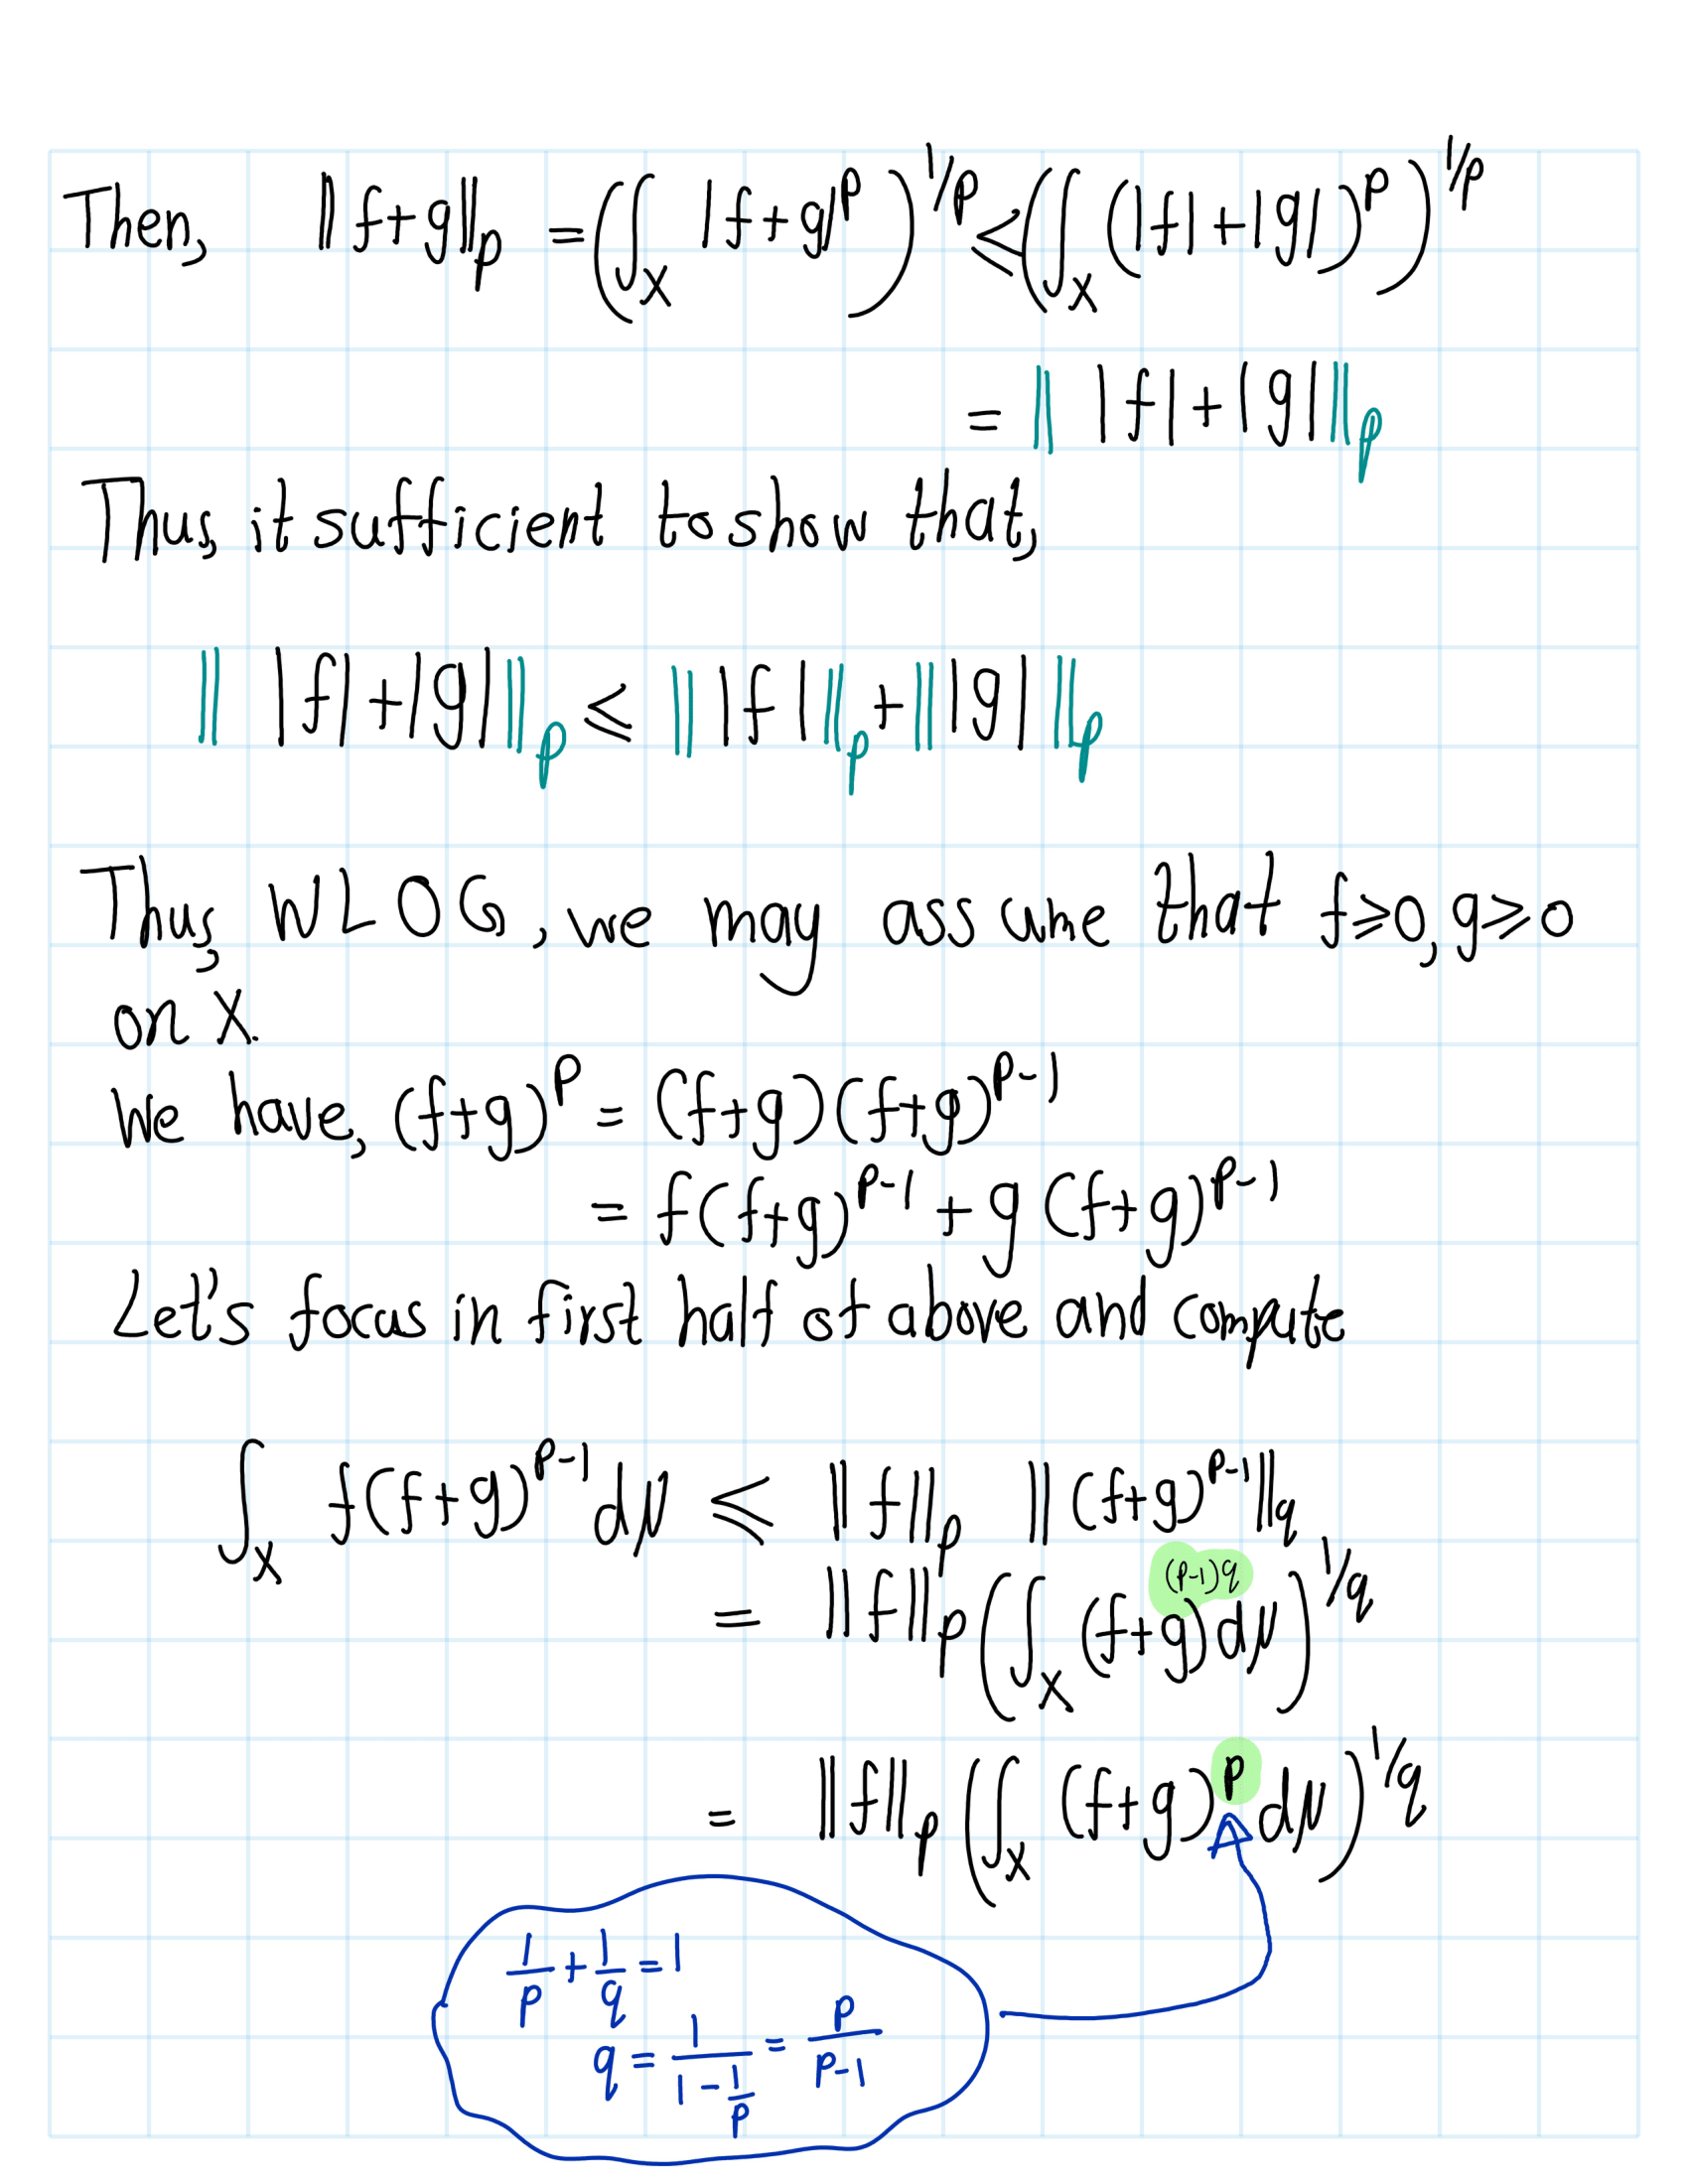 Then, ||f+g||_p = (∫_X |f+g|^p)^{1/p} ≤ (∫_X (|f|+|g|)^p)^{1/p}
= || |f|+|g| ||_p
Thus, it sufficient to show that,
|| |f|+|g| ||_p ≤ || |f| ||_p + || |g| ||_p
Thus, WLOG, we may assume that f≥0, g≥0
on X.
We have, (f+g)^p = (f+g)(f+g)^{p-1}
= f(f+g)^{p-1} + g(f+g)^{p-1}
Let's focus in first half of above and compute
∫_X f(f+g)^{p-1} dμ ≤ ||f||_p ||(f+g)^{p-1}||_q
= ||f||_p (∫_X (f+g)^{(p-1)q} dμ)^{1/q}
= ||f||_p (∫_X (f+g)^p dμ)^{1/q}
1/p + 1/q = 1
q = 1/(1 - 1/p) = p/(p-1)